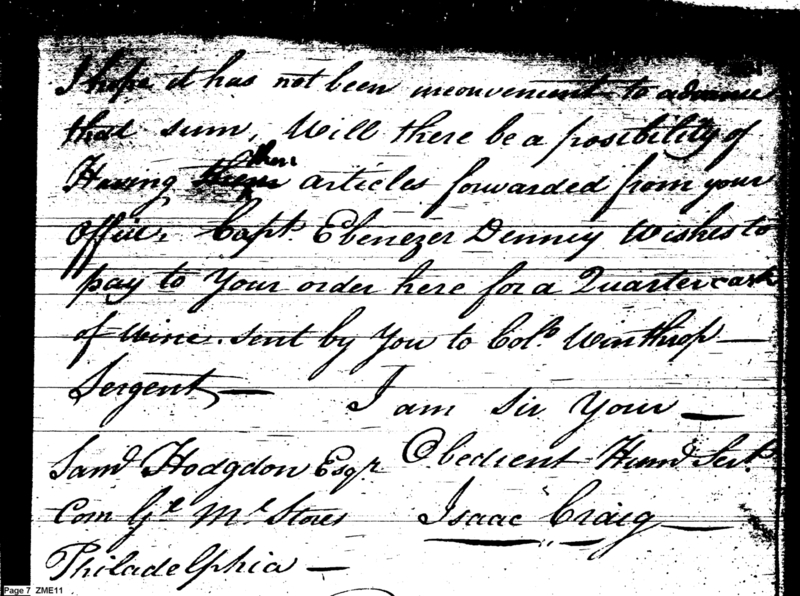 I hope it has not been inconvenient to advance
that sum, Will there be a posibility of
Having then articles forwarded from your
Office, Capt. Ebenezer Denney Wishes to
pay to Your order here for a Quarter cask
of wine sent by You to Col. Winthrop —
Sergent —
I am sir Your —
Obedient Huml. Sert.
Isaac Craig —
Saml. Hodgdon Esqr
Com Gl Mr. Stores
Philadelphia —
Page 7 ZME11